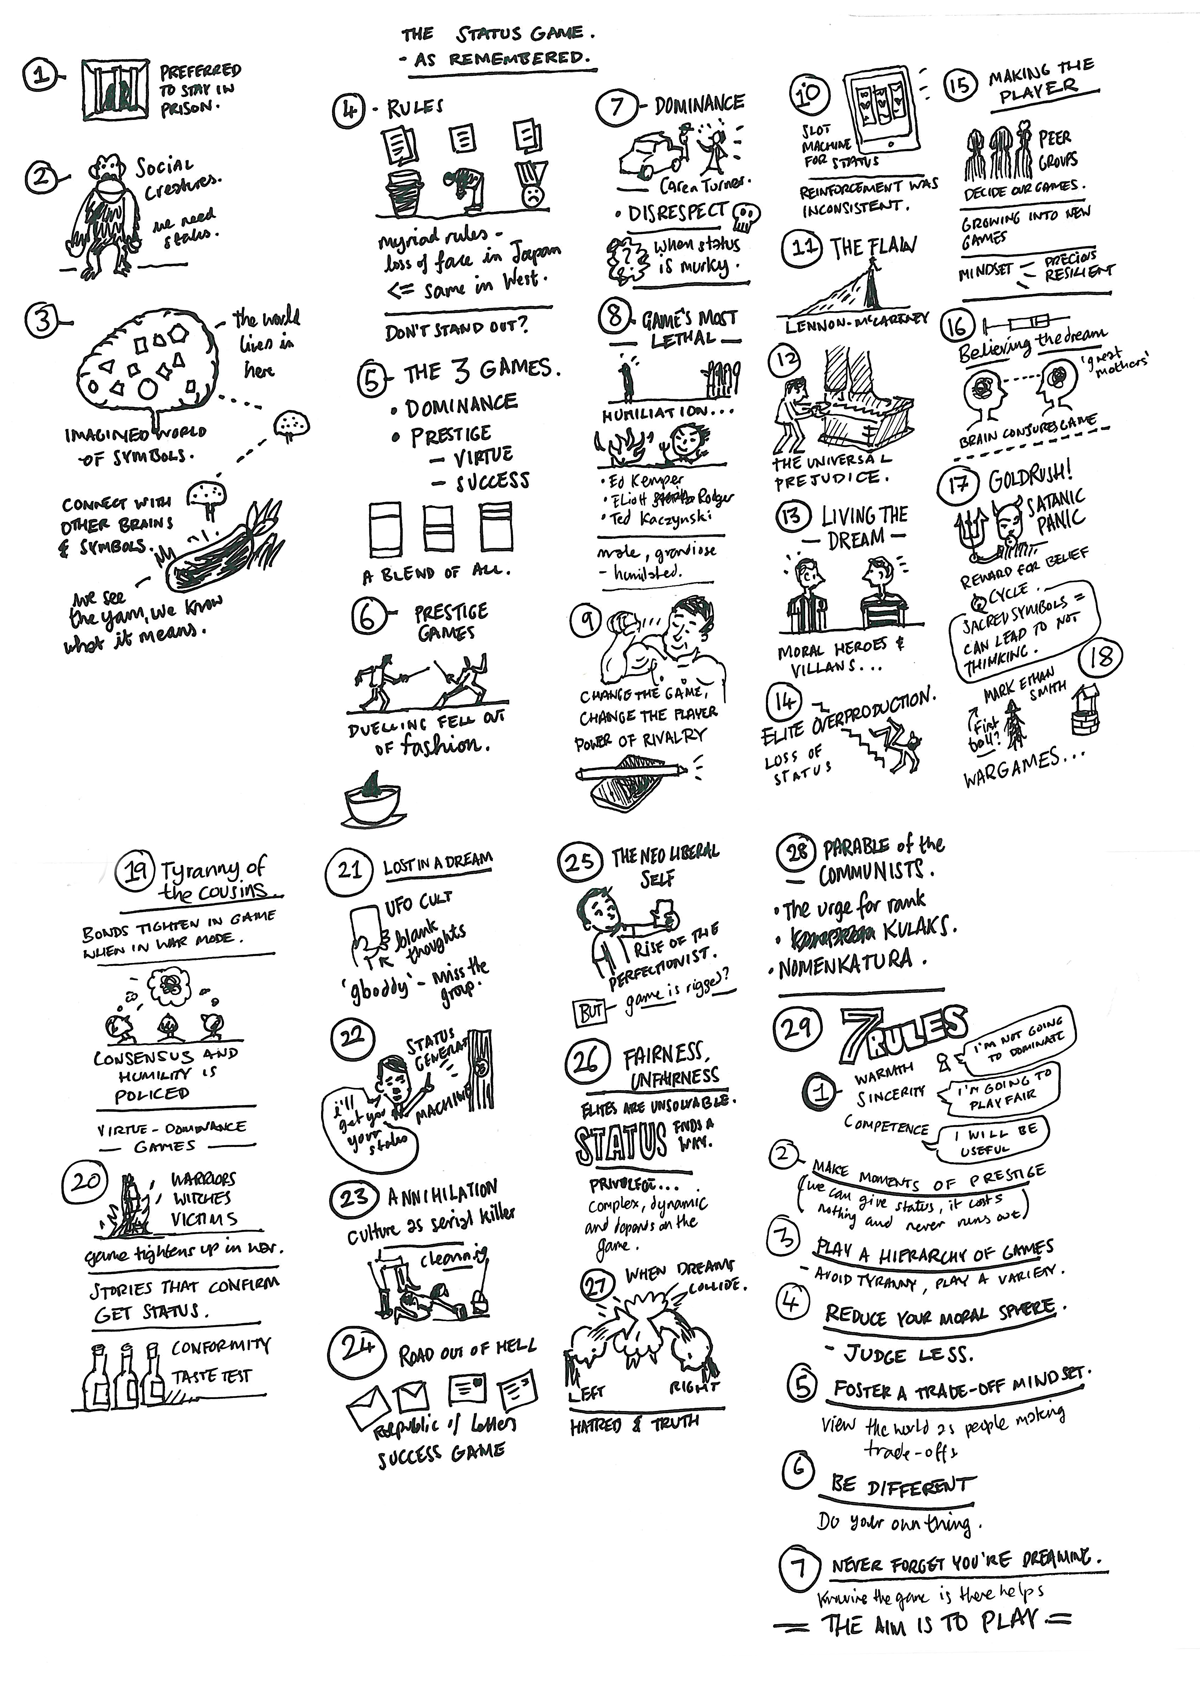 THE STATUS GAME.
- AS REMEMBERED.
1
PREFERRED
TO STAY IN
PRISON.
2
SOCIAL
Creatures.
we need
status.
3
the world
lives in
here
IMAGINED WORLD
OF SYMBOLS.
CONNECT WITH
OTHER BRAINS
& SYMBOLS.
we see
the yam, we know
what it means.
4 - RULES
myriad rules -
loss of face in Japan
<= same in West.
DON'T STAND OUT?
5 - THE 3 GAMES.
• DOMINANCE
• PRESTIGE
- VIRTUE
- SUCCESS
A BLEND OF ALL.
6 - PRESTIGE
GAMES
DUELLING FELL OUT
OF fashion.
7 - DOMINANCE
Caren Turner.
• DISRESPECT
when status
is murky.
8 - GAME'S MOST
LETHAL -
HUMILIATION...
• Ed Kemper
• Elliott Rodger
• Ted Kaczynski
male, grandiose
- humiliated.
9
CHANGE THE GAME,
CHANGE THE PLAYER
POWER OF RIVALRY
10
SLOT
MACHINE
FOR STATUS
REINFORCEMENT WAS
INCONSISTENT.
11 THE FLAW
LENNON-McCARTNEY
12
THE UNIVERSAL
PREJUDICE.
13 LIVING THE
- DREAM -
MORAL HEROES &
VILLANS...
14
ELITE OVERPRODUCTION.
LOSS OF
STATUS
15 MAKING THE
PLAYER
PEER
GROUPS
DECIDE OUR GAMES.
GROWING INTO NEW
GAMES
MINDSET - PRECIOUS
- RESILIENT
16
Believing the dream
'great
mothers'
BRAIN CONJURES GAME
17 GOLDRUSH!
SATANIC
PANIC
REWARD FOR BELIEF
CYCLE.
SACRED SYMBOLS =
CAN LEAD TO NOT
THINKING.
18
MARK ETHAN
SMITH
First
troll?
WARGAMES...
19 Tyranny of
the cousins.
BONDS TIGHTEN IN GAME
WHEN IN WAR MODE.
CONSENSUS AND
HUMILITY IS
POLICED
VIRTUE-DOMINANCE
- GAMES -
20
WARRIORS
WITCHES
VICTIMS
game tightens up in war.
STORIES THAT CONFIRM
GET STATUS.
CONFORMITY
TASTE TEST
21 LOST IN A DREAM
UFO CULT
blank
thoughts
'gboddy' - miss the
group.
22
STATUS
GENERAT
MACHINE
i'll
get you
your
status
23 ANNIHILATION
culture as serial killer
cleaning
24 ROAD OUT OF HELL
Republic of Letters
SUCCESS GAME
25 THE NEO LIBERAL
SELF
RISE OF THE
PERFECTIONIST.
BUT - game is rigged?
26 FAIRNESS,
UNFAIRNESS
ELITES ARE UNSOLVABLE.
STATUS FINDS A
WAY.
PRIVILEGE...
complex, dynamic
and depends on the
game.
27 WHEN DREAMS
COLLIDE.
LEFT RIGHT
HATRED & TRUTH
28 PARABLE of the
- COMMUNISTS.
• The urge for rank
• KULAKS.
• NOMENKATURA.
29 7 RULES
1 WARMTH
SINCERITY
COMPETENCE
I'M NOT GOING
TO DOMINATE
I'M GOING TO
PLAY FAIR
I WILL BE
USEFUL
2 - MAKE MOMENTS OF PRESTIGE
(we can give status, it costs
nothing and never runs out)
3 PLAY A HIERARCHY OF GAMES
- AVOID TYRANNY, PLAY A VARIETY.
4 REDUCE YOUR MORAL SPHERE.
- JUDGE LESS.
5 FOSTER A TRADE-OFF MINDSET.
View the world as people making
trade-offs
6 BE DIFFERENT
Do your own thing.
7 NEVER FORGET YOU'RE DREAMING.
Knowing the game is there helps
= THE AIM IS TO PLAY =